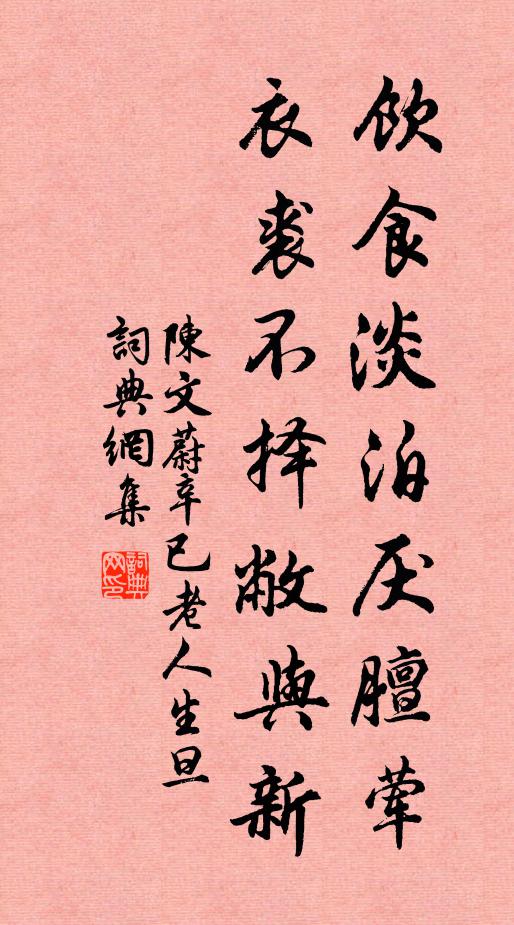 飲食淡泊厌膻荤
衣裘不择敝與新
陳文蔚辛巳老人生旦
詞典網集
詞典網印